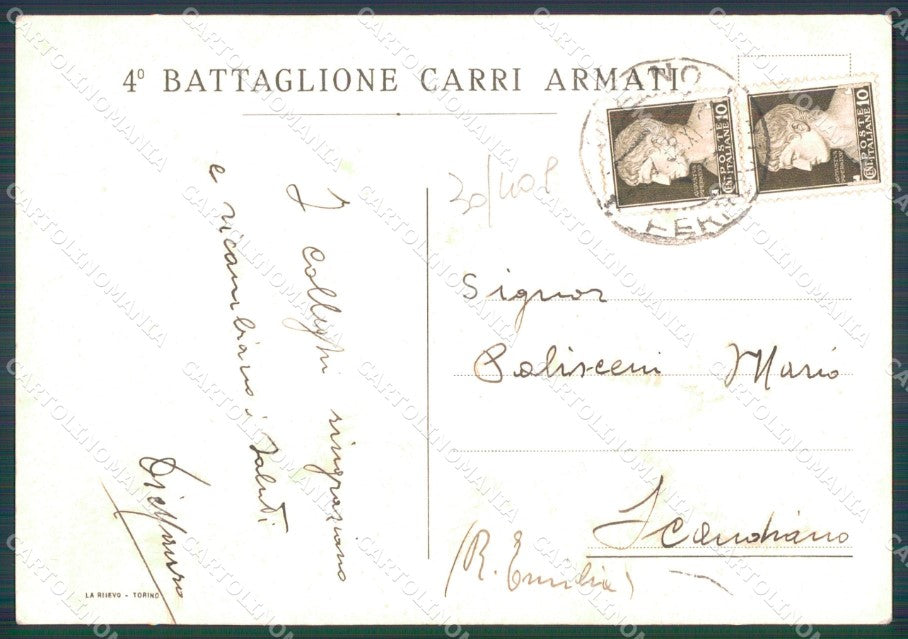 4º BATTAGLIONE CARRI ARMATI
I colleghi ringraziano
e ricambiano i saluti
30/408
POSTE ITALIANE
CENT. 10
POSTE ITALIANE
CENT. 10
MILANO
FERR
Signor
Mario
Scandiano
(R. Emilia)
LA RILIEVO - TORINO
CARTOLINOMANIA